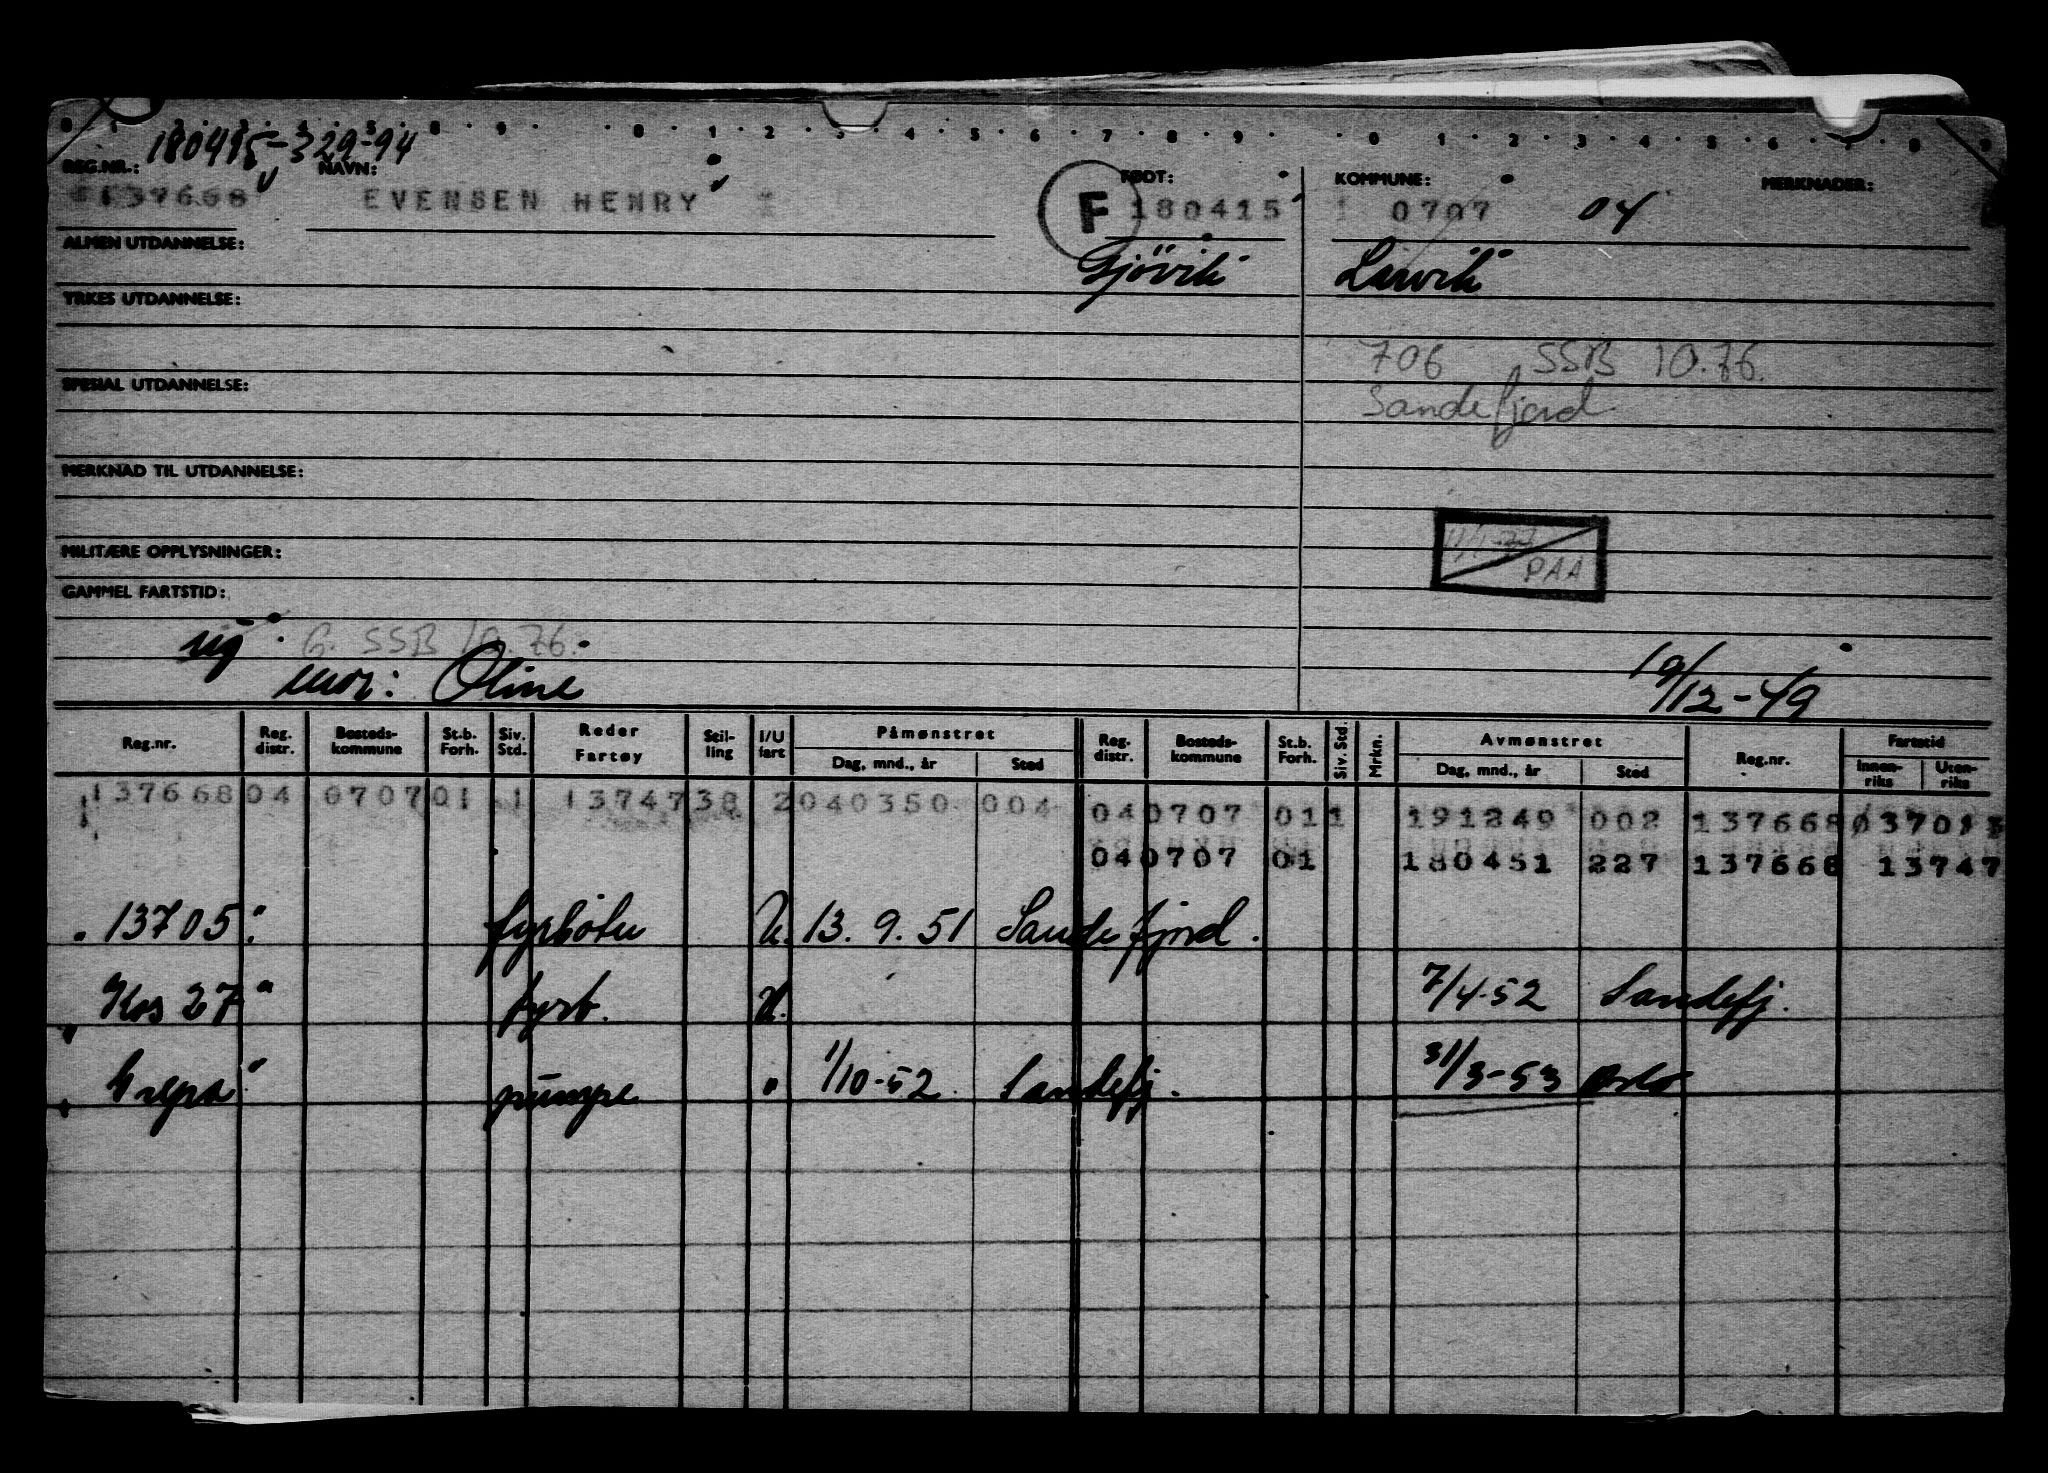 180415-32994
REG.NR.: NAVN: FØDT: KOMMUNE: MERKNADER:
137668 EVENSEN HENRY F 180415 0707 04
ALMEN UTDANNELSE: Gjövik Larvik
YRKES UTDANNELSE:
706 SSB 10.76.
SPESIAL UTDANNELSE: Sandefjord
MERKNAD TIL UTDANNELSE:
MILITÆRE OPPLYSNINGER:
PAA
GAMMEL FARTSTID:
G. SSB 10.76.
mor: Oline 19/12-49
Reg.nr. Reg. distr. Bosteds-kommune St.b. Forh. Siv. Std. Reder Fartøy Stil-ling I/U fart Påmønstret Dag, mnd., år Sted Reg. distr. Bosteds-kommune St.b. Forh. Siv. Std. Mrkn. Avmønstret Dag, mnd., år Sted Reg.nr. Fartstid Innen-riks Uten-riks
137668 04 0707 01 1 13747 38 2 040350 004 04 0707 01 1 191249 002 137668
04 0707 01 180451 227 137668 13747
13705 fyrböter U. 13. 9. 51 Sandefjord.
Kos 27 " fyrb. U. 7/4-52 Sandefj.
pumpe " 1/10-52 Sandefj. 31/3-53 Oslo